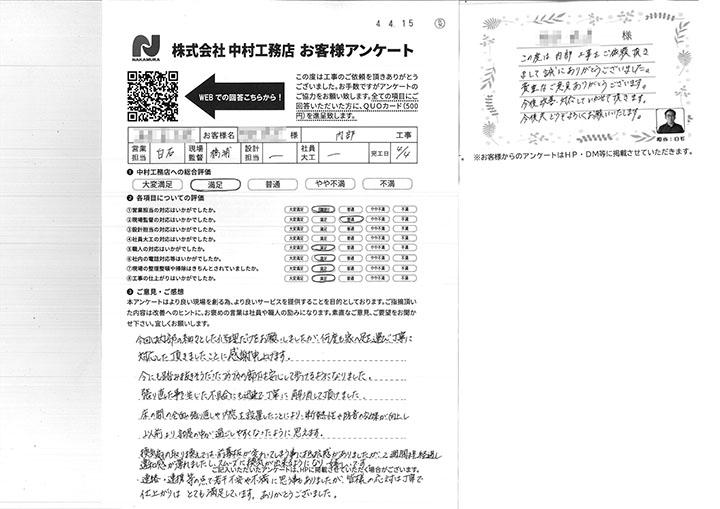 4 4. 15
NAKAMURA
株式会社 中村工務店 お客様アンケート
WEBでの回答こちらから!
この度は工事のご依頼を頂きありがとう
ございました。お手数ですがアンケートの
ご協力をお願い致します。全ての項目にご
回答いただいた方に、QUOカード(500
円)を進呈致します。
お客様名 様 内部 工事
営業担当 白石 現場監督 設計担当 ー 社員大工 ー 完工日 4/4
❶ 中村工務店への総合評価
大変満足 満足 普通 やや不満 不満
❷ 各項目についての評価
①営業担当の対応はいかがでしたか。 大変満足 満足 普通 やや不満 不満
②現場監督の対応はいかがでしたか。 大変満足 満足 普通 やや不満 不満
③設計担当の対応はいかがでしたか。 大変満足 満足 普通 やや不満 不満
④社員大工の対応はいかがでしたか。 大変満足 満足 普通 やや不満 不満
⑤職人の対応はいかがでしたか。 大変満足 満足 普通 やや不満 不満
⑥社内の電話対応等はいかがでしたか。 大変満足 満足 普通 やや不満 不満
⑦現場の整理整頓や掃除はきちんとされていましたか。 大変満足 満足 普通 やや不満 不満
⑧工事の仕上がりはいかがでしたか。 大変満足 満足 普通 やや不満 不満
❸ ご意見・ご感想
本アンケートはより良い現場を創る為、より良いサービスを提供することを目的としております。ご指摘頂い
た内容は改善へのヒントに、お褒めの言葉は社員や職人の励みになります。素直なご意見、ご要望をお聞か
せ下さい。宜しくお願いします。
対応して頂きましたことに感謝申し上げます。
張り直に生じた不具合にも迅速で丁寧に解消して頂けました。
より以前より部屋の中が過ごしやすくなったように思えます。
違和感が薄れましたし、スムーズに換気が出来るようになり嬉しいです。
ご記入いただいたアンケートは、HPに掲載させていただく場合がございます。
・連絡・連携等の点で若干不安や不満に思う事もありましたが、皆様の応対は丁寧で
仕上がりはとても満足しています。ありがとうございました。
様
この度は内部工事をご依頼頂き
まして誠にありがとうございました。
貴重なご意見ありがとうございます。
今後改善・対応していかせて頂きます。
今後共どうぞよろしくお願いいたします。
担当:白石
※お客様からのアンケートはHP・DM等に掲載させていただきます。